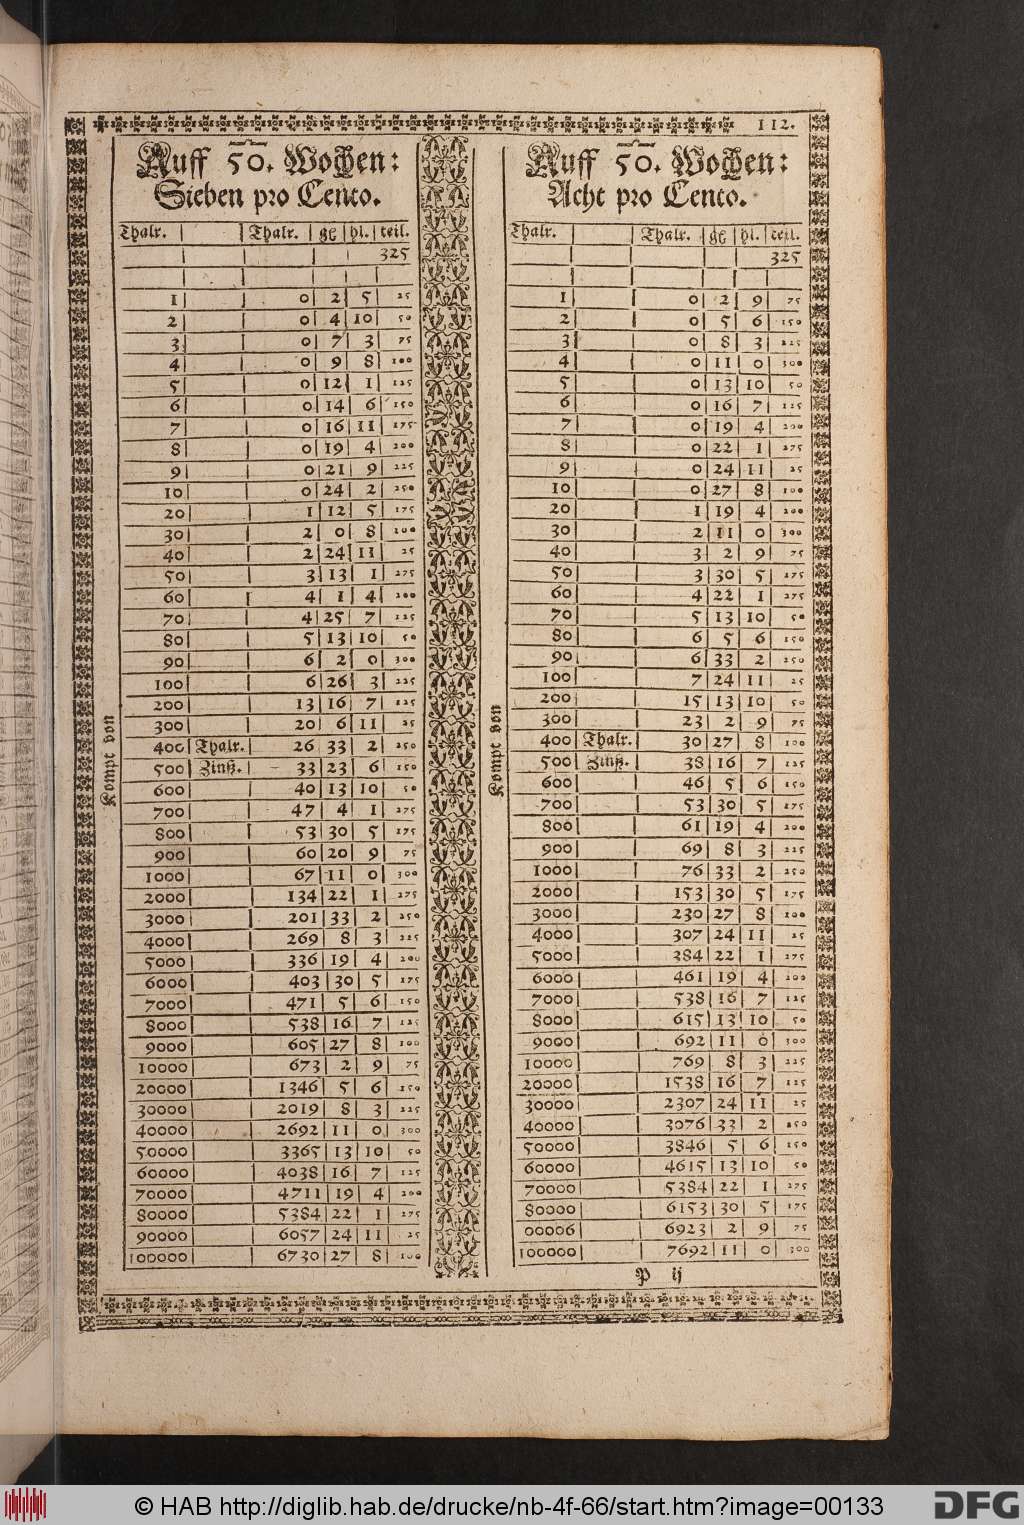 112.
Auff 50. Wochen:
Sieben pro Cento.
Thalr. Thalr. gl hl. teil.
325
1 0 2 5 25
2 0 4 10 50
3 0 7 3 75
4 0 9 8 100
5 0 12 1 125
6 0 14 6 150
7 0 16 11 175
8 0 19 4 200
9 0 21 9 225
10 0 24 2 250
20 1 12 5 175
30 2 0 8 100
40 2 24 11 25
50 3 13 1 275
60 4 1 4 200
70 4 25 7 125
80 5 13 10 50
90 6 2 0 300
100 6 26 3 225
200 13 16 7 125
300 20 6 11 25
400 Thalr. 26 33 2 250
500 Zinß. 33 23 6 150
600 40 13 10 50
700 47 4 1 275
800 53 30 5 175
900 60 20 9 75
1000 67 11 0 300
2000 134 22 1 275
3000 201 33 2 250
4000 269 8 3 225
5000 336 19 4 200
6000 403 30 5 175
7000 471 5 6 150
8000 538 16 7 125
9000 605 27 8 100
10000 673 2 9 75
20000 1346 5 6 150
30000 2019 8 3 225
40000 2692 11 0 300
50000 3365 13 10 50
60000 4038 16 7 125
70000 4711 19 4 200
80000 5384 22 1 275
90000 6057 24 11 25
100000 6730 27 8 100
Kompt von
Auff 50. Wochen:
Acht pro Cento.
Thalr. Thalr. gl hl. teil.
325
1 0 2 9 75
2 0 5 6 150
3 0 8 3 225
4 0 11 0 300
5 0 13 10 50
6 0 16 7 125
7 0 19 4 200
8 0 22 1 275
9 0 24 11 25
10 0 27 8 100
20 1 19 4 200
30 2 11 0 300
40 3 2 9 75
50 3 30 5 175
60 4 22 1 275
70 5 13 10 50
80 6 5 6 150
90 6 33 2 250
100 7 24 11 25
200 15 13 10 50
300 23 2 9 75
400 Thalr. 30 27 8 100
500 Zinß. 38 16 7 125
600 46 5 6 150
700 53 30 5 175
800 61 19 4 200
900 69 8 3 225
1000 76 33 2 250
2000 153 30 5 175
3000 230 27 8 100
4000 307 24 11 25
5000 384 22 1 275
6000 461 19 4 200
7000 538 16 7 125
8000 615 13 10 50
9000 692 11 0 300
10000 769 8 3 225
20000 1538 16 7 125
30000 2307 24 11 25
40000 3076 33 2 250
50000 3846 5 6 150
60000 4615 13 10 50
70000 5384 22 1 275
80000 6153 30 5 175
00006 6923 2 9 75
100000 7692 11 0 300
Kompt von
P ij
© HAB http://diglib.hab.de/drucke/nb-4f-66/start.htm?image=00133
DFG